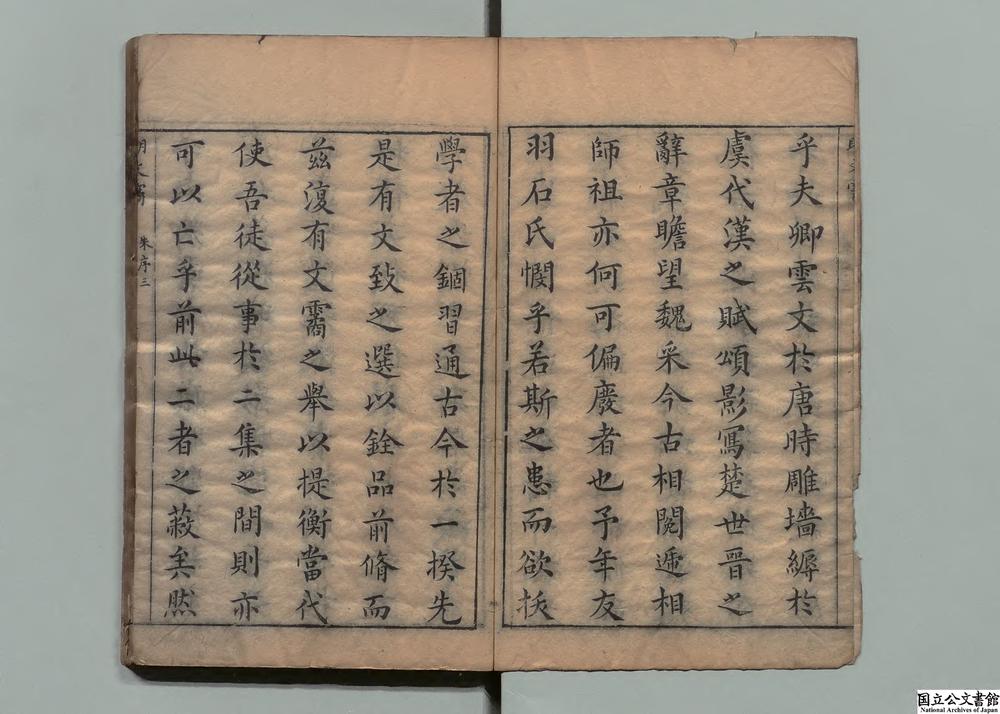 乎夫卿雲文於唐時雕墻縟於
虞代漢之賦頌影寫楚世晉之
辭章瞻望魏采今古相閱遞相
師祖亦何可偏廢者也予年友
羽石氏憫乎若斯之患而欲抶
學者之錮習通古今於一揆先
是有文致之選以銓品前脩而
茲復有文霱之舉以提衡當代
使吾徒從事於二集之間則亦
可以亡乎前此二者之蔽矣然
朱序三
国立公文書館
National Archives of Japan